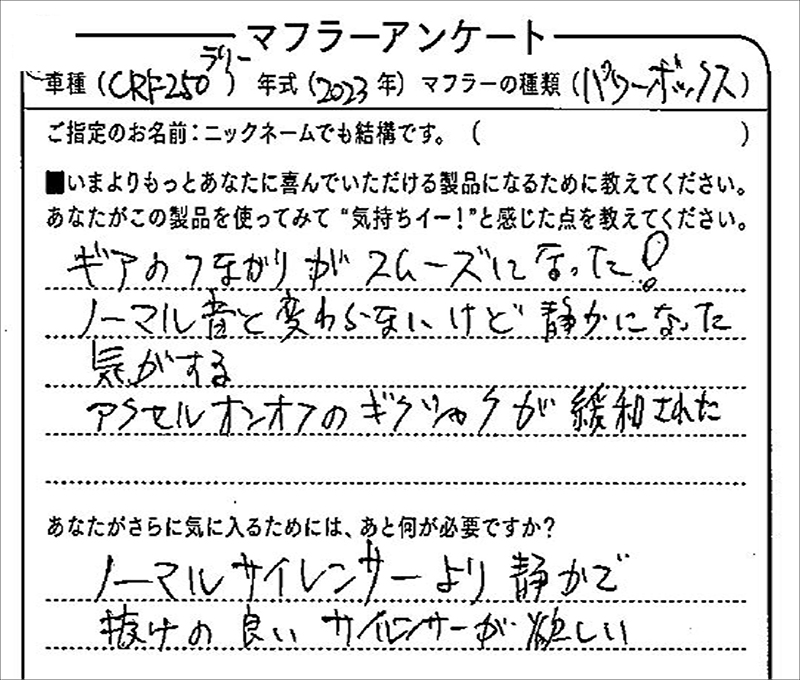 マフラーアンケート
車種(CRF250ラリー) 年式(2023年) マフラーの種類(パワーボックス)
ご指定のお名前:ニックネームでも結構です。( )
■いまよりもっとあなたに喜んでいただける製品になるために教えてください。
あなたがこの製品を使ってみて“気持ちイー!”と感じた点を教えてください。
ギアのつながりがスムーズになった!
ノーマル音と変わらないけど静かになった
気がする
アクセルオンオフのギクシャクが緩和された
あなたがさらに気に入るためには、あと何が必要ですか?
ノーマルサイレンサーより静かで
抜けの良いサイレンサーが欲しい